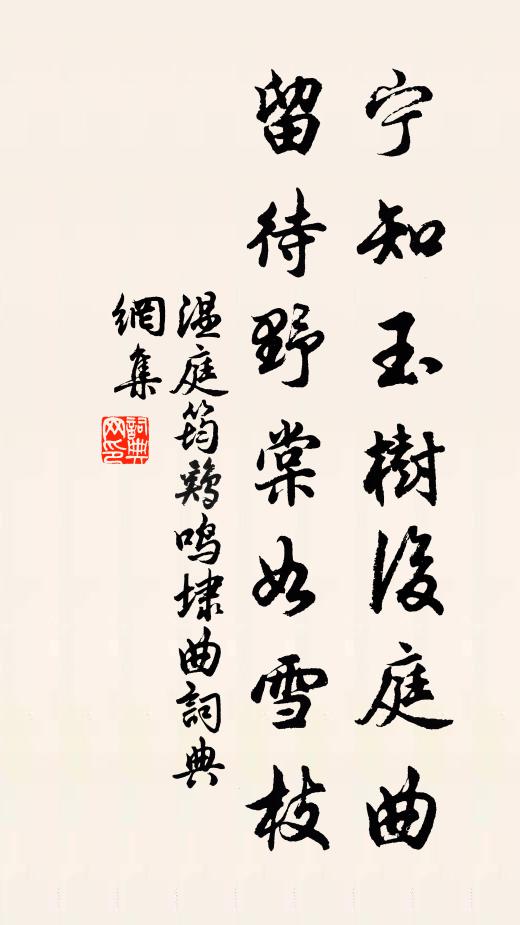 宁知玉樹後庭曲
留待野棠如雪枝
温庭筠鷄鳴埭曲詞典
網集
詞典網印